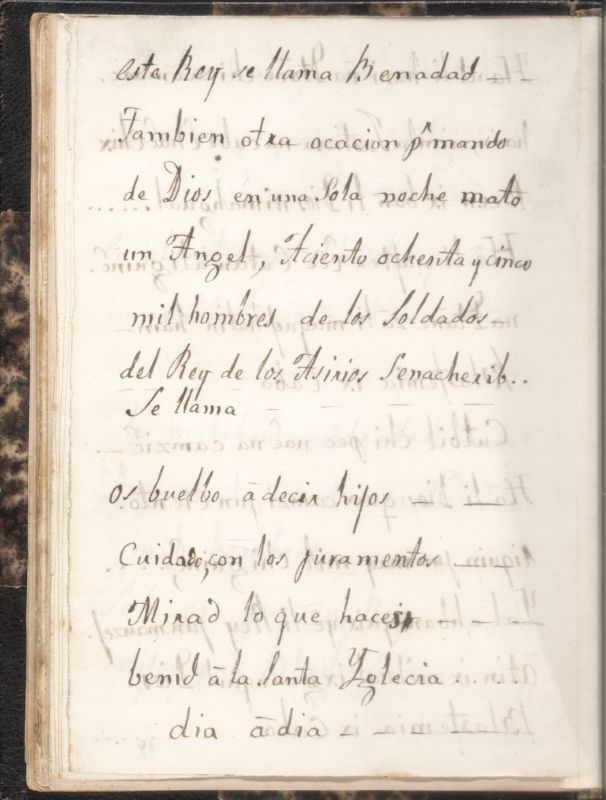 este Rey se llama Benadad
Tambien otra ocacion pr mando
de Dios en una Sola noche mato
un Angel, Aciento ochenta y cinco
mil hombres de los Soldados-
del Rey de los Asirios Senacherib..
Se llama - - - -
os buelbo â decir hijos - -
Cuidado, con los juramentos -
Mirad lo que haceis - -
benid â la Santa Yglecia ....
dia â dia - - -